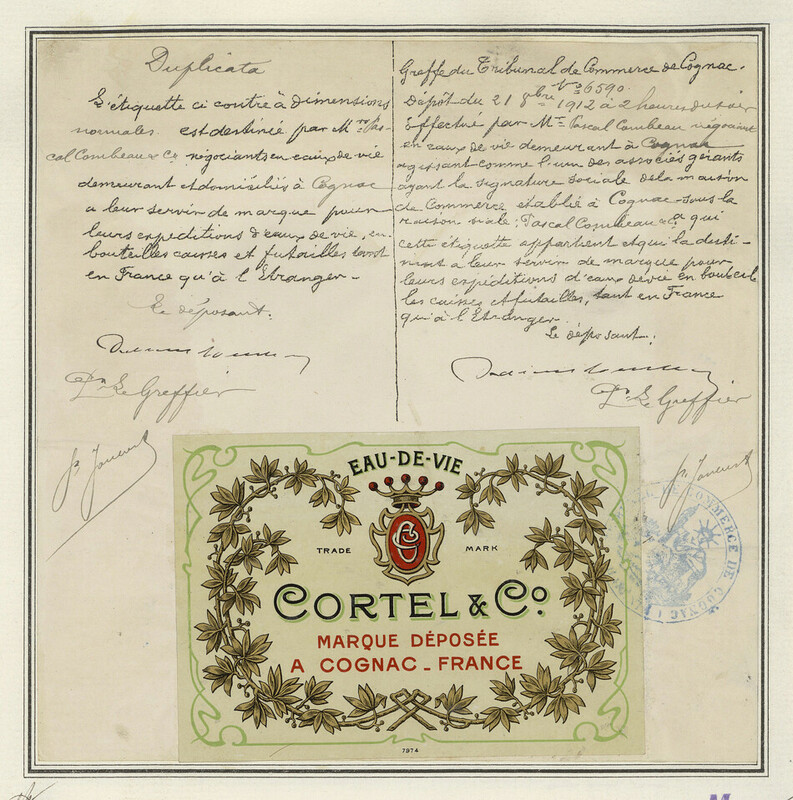 Duplicata
L'étiquette ci contre à dimensions
normales est destinée par Mrs Pas-
cal Combeau & Co négociants en eaux de vie
demeurant et domiciliés à Cognac
a leur servir de marque pour
leurs expéditions d'eaux de vie, en
bouteilles caisses et futailles tant
en France qu'à l'Etranger -
Le déposant:
Le Greffier
Greffe du Tribunal de Commerce de Cognac.
No 6590.
Dépôt du 21 8bre 1912 à 2 heures du soir
Effectué par Mr Pascal Combeau négociant
en eaux de vie demeurant à Cognac
agissant comme l'un des associés gérants
ayant la signature sociale de la maison
de Commerce établie à Cognac sous la
raison siale: Pascal Combeau & Co a qui
cette étiquette appartient et qui la desti-
nent à leur servir de marque pour
leurs expéditions d'eaux de vie en bouteil
les caisses et futailles, tant en France
qu'à l'Etranger
Le déposant:
Le Greffier
EAU-DE-VIE
CG
TRADE MARK
CORTEL & Co
MARQUE DÉPOSÉE
A COGNAC - FRANCE
7974
DE COMMERCE DE COGNAC